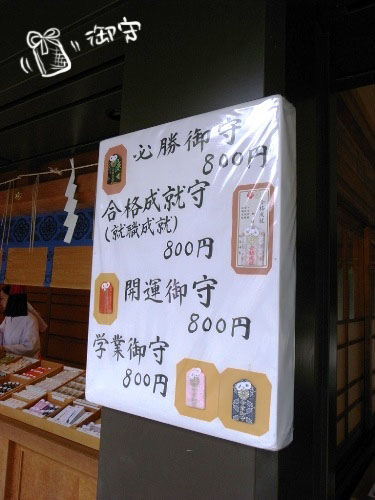 御守
必勝御守
800円
合格成就守
(就職成就)
800円
開運御守
800円
学業御守
800円